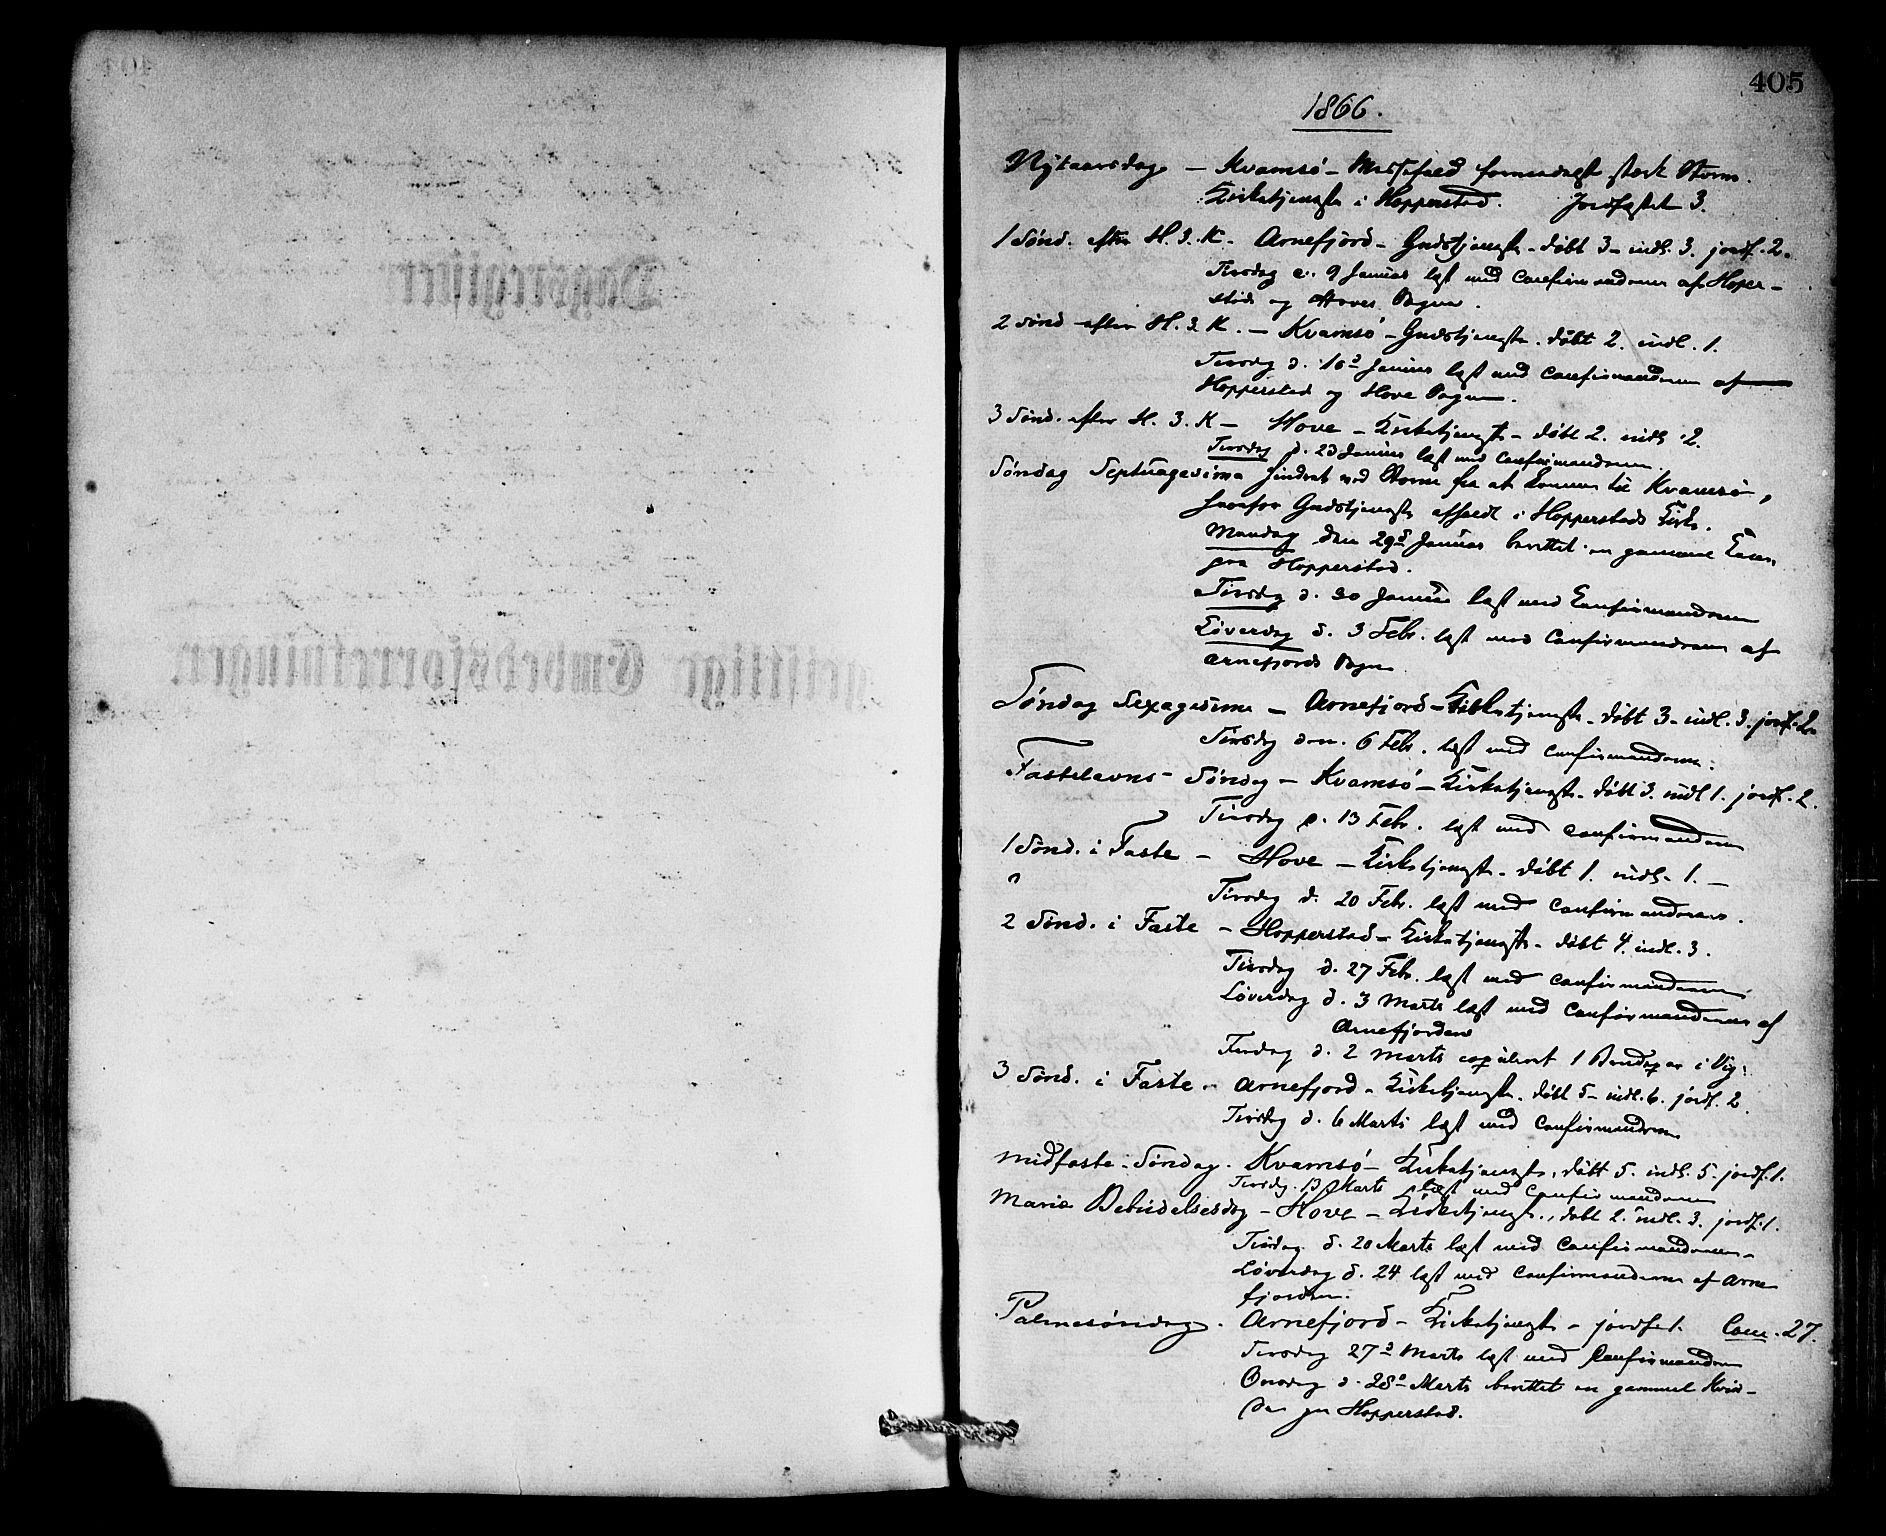 405
1866.
Nytaarsdag – Kvamsö – Messefald formedelst stærk Storm.
Kirketjeneste i Hopperstad. Jordfæstet 3.
1 Sönd. efter H. 3. K. Arnefjord – Gudstjeneste – döbt 3 – indl. 3. jordf. 2.
Tirsdag 9 Januar læst med Confirmanderne af Hopper-
stad og Hoves Sogne.
2 Sönd efter H. 3. K. – Kvamsö – Gudstjeneste. döbt 2. indl. 1.
Tirsdag d. 16d Januar læst med Confirmanderne af
Hopperstad og Hove Sogne.
3 Sönd. efter H. 3. K – Hove – Kirketjeneste – döbt 2. indl. 2.
Tirsdag d. 23 Januar læst med Confirmanderne.
Söndag Septuagesima hindret ved Storm fra at komme til Kvamsö,
hvorfor Gudstjeneste afholdt i Hopperstads Kirke.
Mandag den 29d Januar berettet en gammel
paa Hopperstad.
Tirsdag d. 30 Januar læst med Confirmanderne
Löverdag d. 3 Febr. læst med Confirmanderne af
Arnefjords Sogn
Söndag Sexagesima – Arnefjord – Kirketjeneste – döbt 3 – indl. 3. jordf. 2
Tirsdag den 6 Febr. læst med Confirmanderne.
Fastelavns – Söndag – Kvamsö – Kirketjeneste – döbt 3. indl 1. jordf. 2.
Tirsdag d. 13 Febr. læst med Confirmanderne
1 Sönd. i Faste – Hove – Kirketjeneste – döbt 1. indl. 1. –
Tirsdag d. 20 Febr. læst med Confirmanderne.
2 Sönd. i Faste – Hopperstad – Kirketjeneste – döbt 4. indl. 3.
Tirsdag d. 27 Febr. læst med Confirmanderne
Löverdag d. 3 Marts læst med Confirmanderne af
Arnefjorden
Fredag d. 2 Marts copuleret 1 Brudepar i Vig.
3 Sönd. i Faste – Arnefjord – Kirketjeneste. döbt 5 – indl. 6. jordf. 2.
Tirsdag d. 6 Marts læst med Confirmanderne
Midfaste – Söndag. Kvamsö – Kirketjeneste, döbt 5. indl. 5. jordf. 1.
Tirsdag. 13 Marts læst med Confirmanderne
Mariæ Bebudelsesdag – Hove – Kirketjeneste, döbt 2. indl. 3. jordf. 1.
Tirsdag d. 20 Marts læst med Confirmanderne.
Löverdag d. 24 læst med Confirmanderne af Arne
fjorden.
Palmesöndag. Arnefjord – Kirketjeneste – jordf. 1. Com. 27.
Tirsdag 27d Marts læst med Confirmanderne
Onsdag d. 28d Marts berettet en gammel Kvin-
de paa Hopperstad.